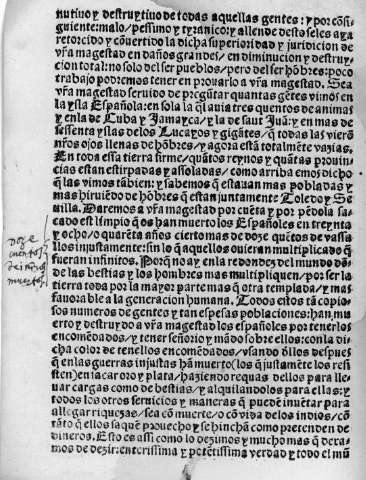 nutiuo y destruytiuo de todas aquellas gentes: y por cõsi-
guiente: malo / pessimo y tyranico: y allende desto seles aya
retorcido y cõuertido la dicha superioridad y juridicion de
vr̃a magestad en daños grandes / en diminucion y destruy-
cion total: no solo del ser pueblos / pero del ser hõbres: poco
trabajo podremos tener en prouarlo a vr̃a magestad. Sea
vr̃a magestad seruido de pregũtar quantas gẽtes vimos en
la ysla Española: en sola la q̃l auia tres quentos de animas
y en la de Cuba y Jamayca / y la de sant Juã: y en mas de
sessenta yslas delos Lucayos y gigãtes / q̃ todas las vierõ
nr̃os ojos llenas de hõbres / y agora está totalmẽte vazias.
En toda essa tierra firme / quãtos reynos y quãtas prouin-
cias estan estirpadas y assoladas / como arriba emos dicho
q̃ las vimos tãbien: y sabemos q̃ estauan mas pobladas y
mas hiruiẽdo de hõbres q̃ estan juntamente Toledo y Se-
uilla. Daremos a vr̃a magestad por cuẽta y por pẽdola sa-
cado es limpio q̃ os han muerto los Españoles en treynta
y ocho / o quarẽta años ciertos mas de doze quẽtos de vassa-
llos injustamente: sin lo q̃ aquellos ouieran multiplicado q̃
fueran infinitos. Porq̃ no ay en la redondez del mundo dõ-
de las bestias y los hombres mas multipliquen / por ser la
tierra toda por la mayor parte mas q̃ otra templada / y mas
fauorable a la generacion humana. Todos estos tã copio-
sos numeros de gentes y tan espesas poblaciones: han mu-
erto y destruydo a vr̃a magestad los españoles por tenerlos
encomẽdados / y tener señorio y mãdo sobre ellos: con la di-
cha color de tenellos encomẽdados / vsando dllos despues
q̃ en las guerras injustas hã muerto (los q̃ justamẽte los resi-
stẽ) en sacar oro y plata / haziendo requas dellos para lle-
uar cargas como de bestias / y alquilandolos para ellas: y
todos los otros seruicios y maneras q̃ puede inuẽtar para
allegar riquezas / sea cõ muerte / o cõ vida de los indios / cõ
tãto q̃ ellos saquẽ prouecho y se hinchã como pretenden de
dineros. Esto es assi como lo dezimos y mucho mas q̃ dexa-
mos de dezir: enterissima y potẽtissima verdad y todo el mũ
doze
cuentos